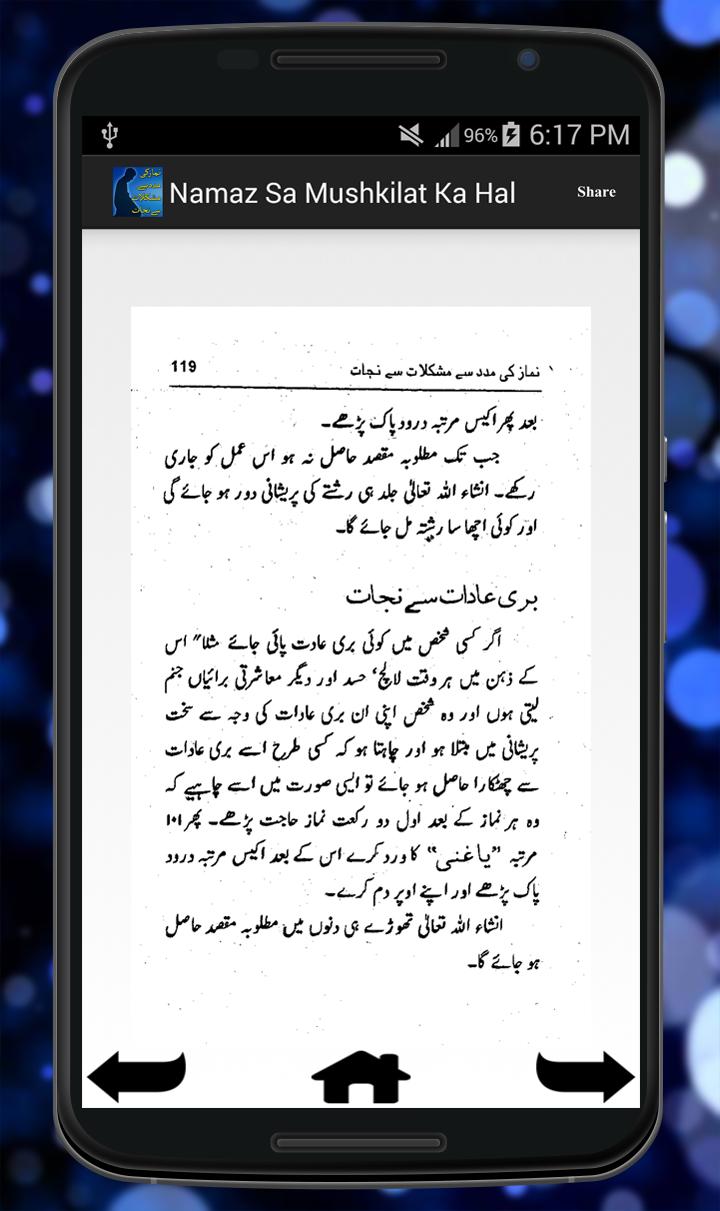 96% 6:17 PM
نماز کی
مدد سے
مشکلات
سے نجات
Namaz Sa Mushkilat Ka Hal
Share
نماز کی مدد سے مشکلات سے نجات 119
بعد پھر اکیس مرتبہ درود پاک پڑھے۔
جب تک مطلوبہ مقصد حاصل نہ ہو اس عمل کو جاری
رکھے۔ انشاء اللہ تعالیٰ جلد ہی رشتے کی پریشانی دور ہو جائے گی
اور کوئی اچھا سا رشتہ مل جائے گا۔
بری عادات سے نجات
اگر کسی شخص میں کوئی بری عادت پائی جائے مثلا" اس
کے ذہن میں ہر وقت لالچ' حسد اور دیگر معاشرتی برائیاں جنم
لیتی ہوں اور وہ شخص اپنی ان بری عادات کی وجہ سے سخت
پریشانی میں مبتلا ہو اور چاہتا ہو کہ کسی طرح اسے بری عادات
سے چھٹکارا حاصل ہو جائے تو ایسی صورت میں اسے چاہیے کہ
وہ ہر نماز کے بعد اول دو رکعت نماز حاجت پڑھے۔ پھر ۱۰۱
مرتبہ "یا غنی" کا ورد کرے اس کے بعد اکیس مرتبہ درود
پاک پڑھے اور اپنے اوپر دم کرے۔
انشاء اللہ تعالیٰ تھوڑے ہی دنوں میں مطلوبہ مقصد حاصل
ہو جائے گا۔